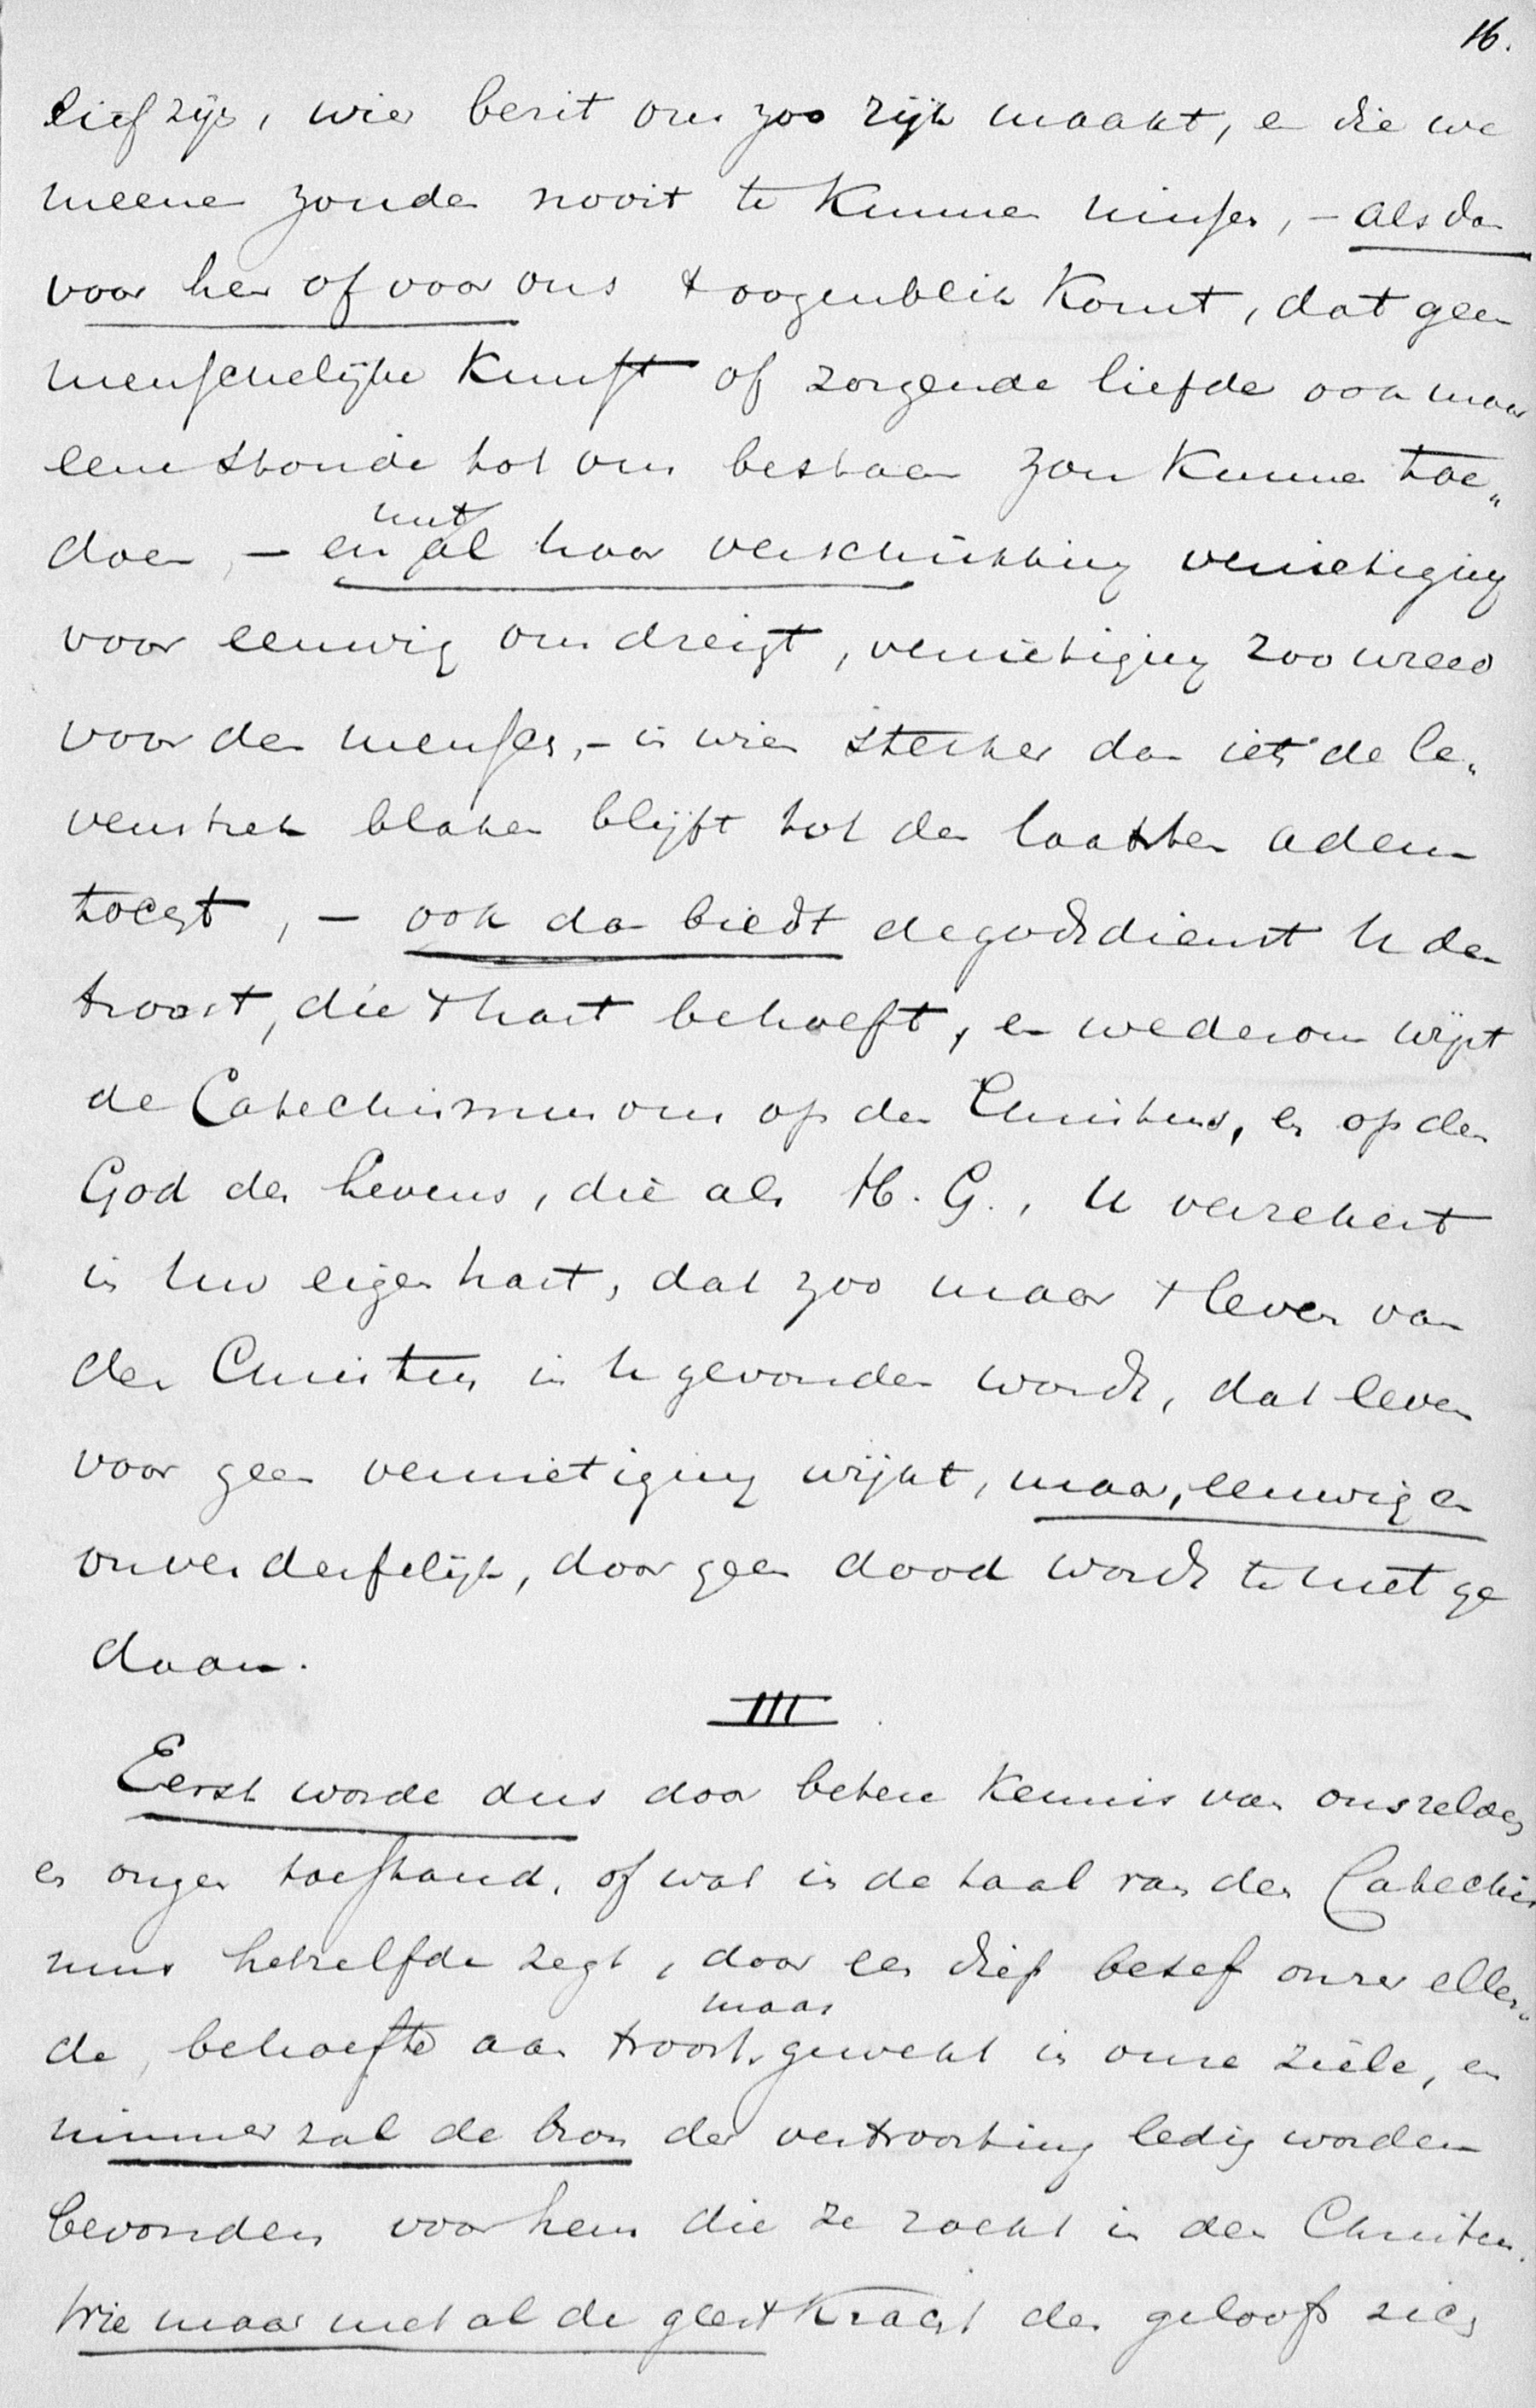 16.
lief zijn, wier bezit ons zoo rijk maakt, en die we
meenen zonder nooit te kunnen minsen, – als dan
voor hen of voor ons 't oogenblik komt, dat geen
menschelijke kunst of zorgende liefde ook maar
eene stonde tot ons bestaan zou kunnen toe„
doen, – en met al haar verschrikking vernietiging
voor eeuwig ons dreigt, vernietiging zoo wreed
voor den mensen, – in wien sterker dan iets de le„
venstrek blaken blijft tot den laatsten adem
tocht, – ook dan biedt de godsdienst U den
troost, die 't hart behoeft, en wederom wijst
de Catechismus ons op den Christus, en op den
God des levens, die als H. G., U verzekert
in Uw eigen hart, dat zoo maar 't leven van
den Christus in U gevonden wordt, dat leven
voor geen vernietiging wijkt, maar, eeuwig en
onverderfelijk, door geen dood wordt te niet ge
daan.
III
Eerst worde dus door betere kennis van onszelven
en onzen toestand, of wat in de taal van den Catechis
mus hetzelfde zegt, door een diep besef onzer ellen„
de, behoefte aan troost maar gewekt in onze ziele, en
nimmer zal de bron der vertroosting ledig worden
bevonden voor hem die ze zoekt in den Christus.
Wie maar met al de geestkracht des geloofs zich